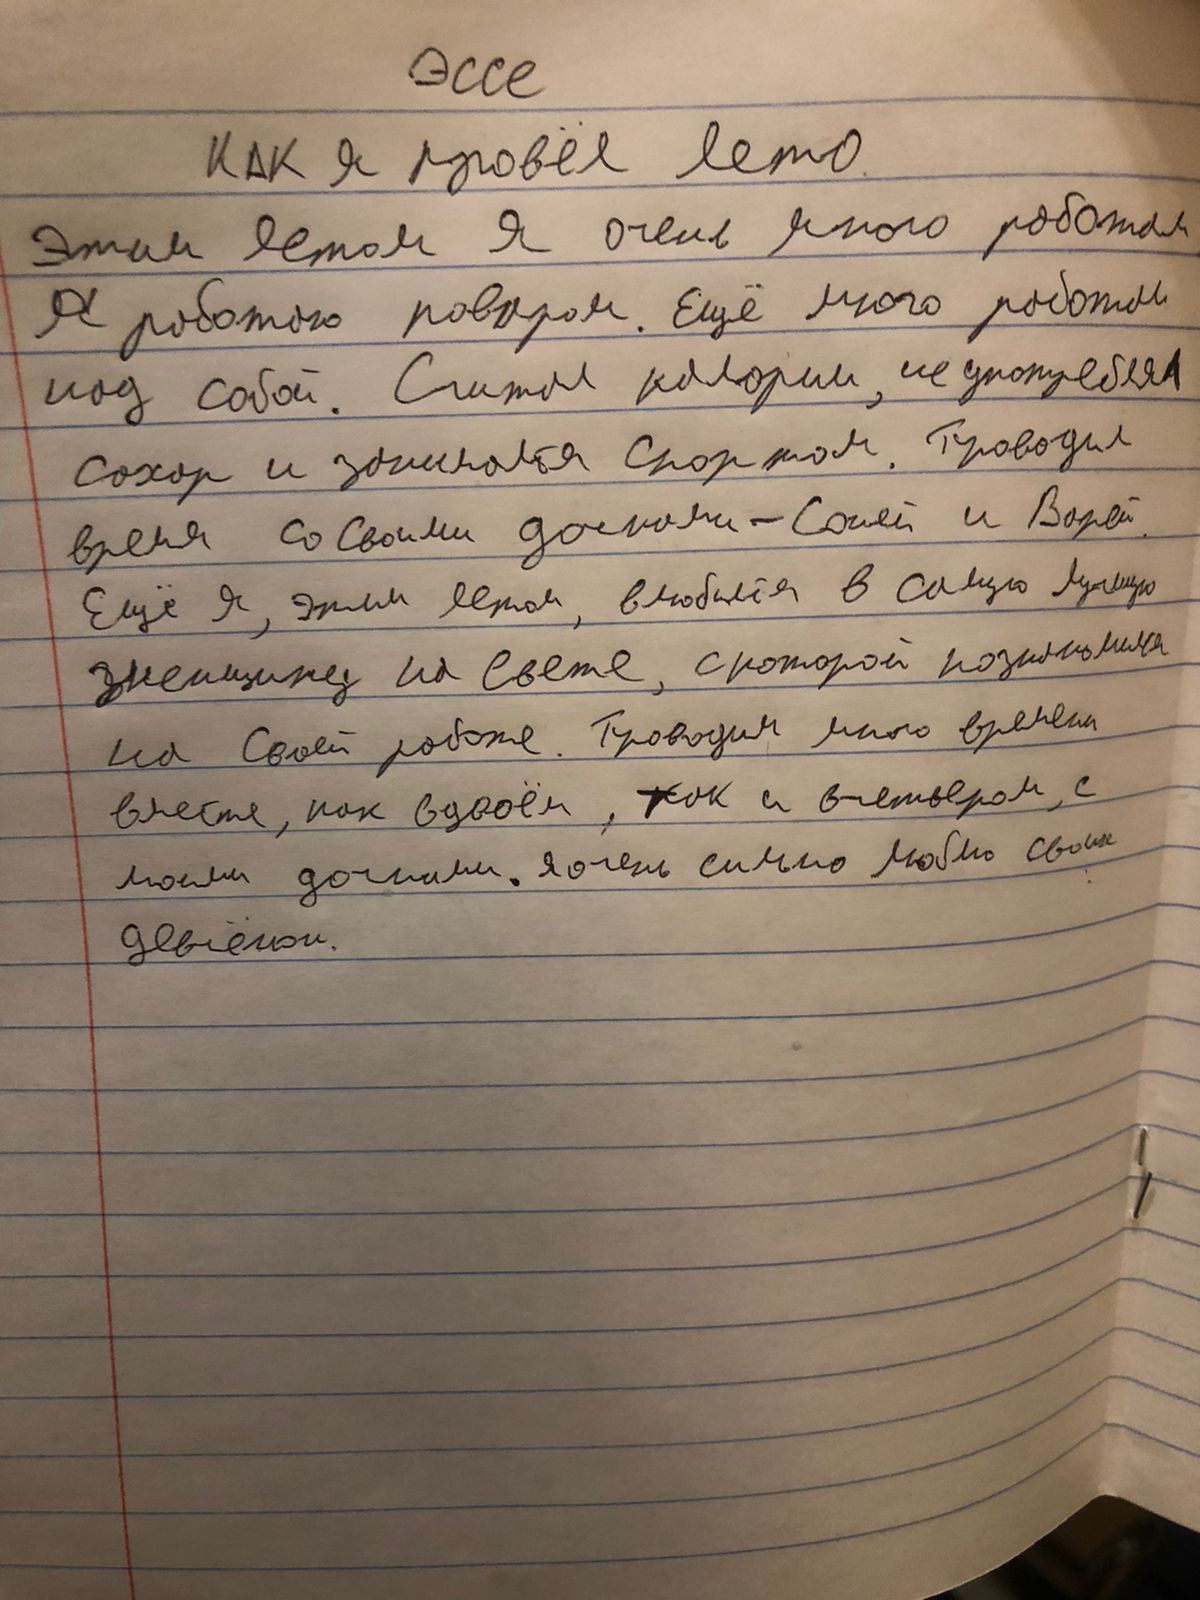 Эссе
Как я провёл лето.
Этим летом я очень много работал
Я работаю поваром. Ещё много работал
над собой. Считал калории, не употреблял
сахар и занимался спортом. Проводил
время со своими дочками - Соней и Варей.
Ещё я, этим летом, влюбился в самую лучшую
женщину на свете, с которой познакомился
на своей работе. Проводим много времени
вместе, как вдвоём, так и вчетвером, с
моими дочками. Я очень сильно люблю своих
девчёнок.